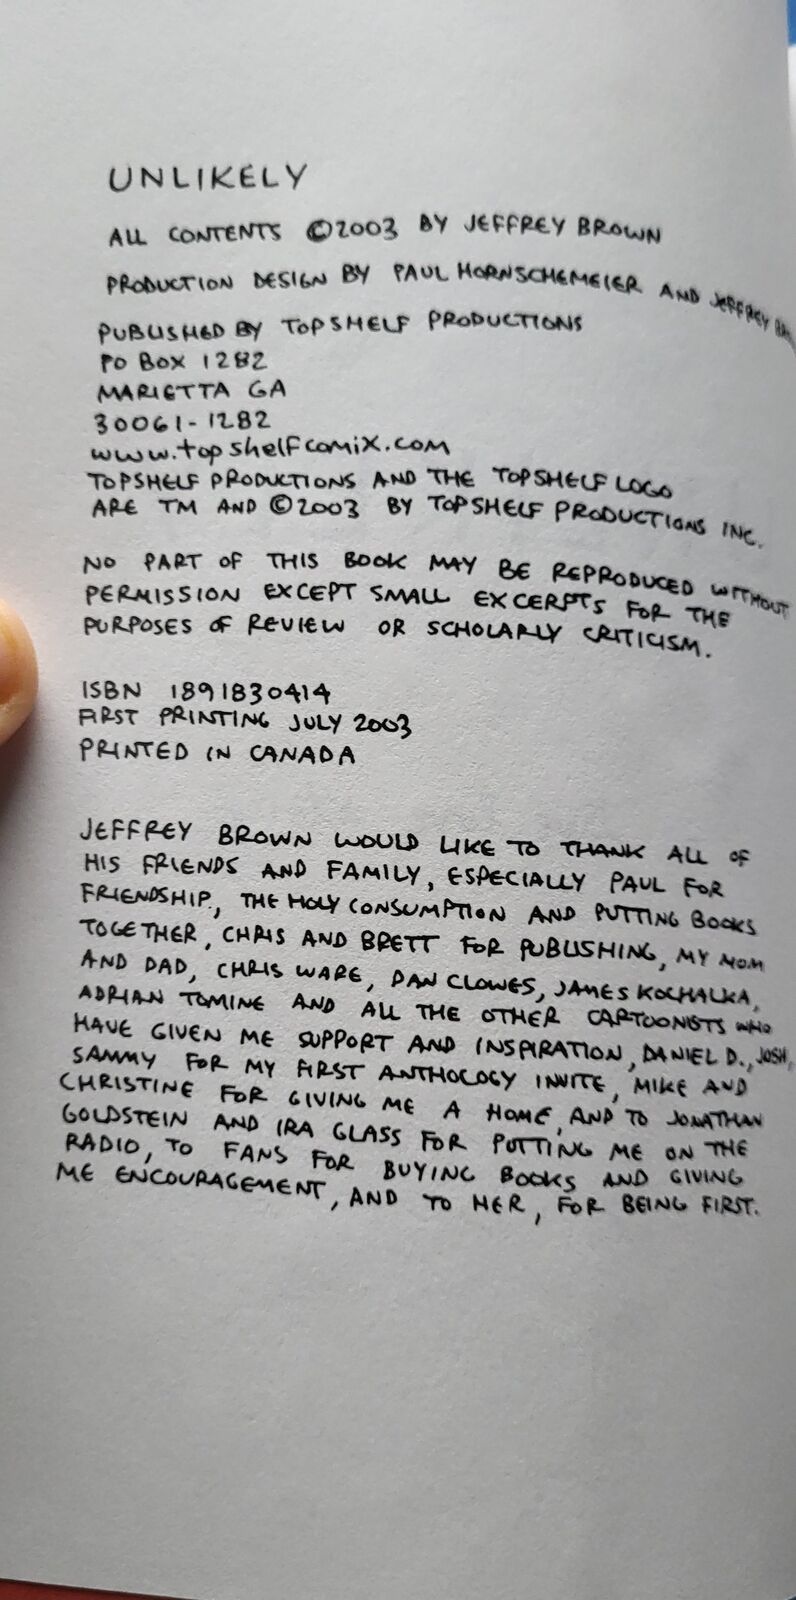 UNLIKELY
ALL CONTENTS ©2003 BY JEFFREY BROWN
PRODUCTION DESIGN BY PAUL HORNSCHEMEIER AND JEFFREY
PUBLISHED BY TOPSHELF PRODUCTIONS
PO BOX 1282
MARIETTA GA
30061-1282
www.topshelfcomix.com
TOPSHELF PRODUCTIONS AND THE TOPSHELF LOGO
ARE TM AND ©2003 BY TOPSHELF PRODUCTIONS INC.
NO PART OF THIS BOOK MAY BE REPRODUCED WITHOUT
PERMISSION EXCEPT SMALL EXCERPTS FOR THE
PURPOSES OF REVIEW OR SCHOLARLY CRITICISM.
ISBN 1891830414
FIRST PRINTING JULY 2003
PRINTED IN CANADA
JEFFREY BROWN WOULD LIKE TO THANK ALL OF
HIS FRIENDS AND FAMILY, ESPECIALLY PAUL FOR
FRIENDSHIP, THE HOLY CONSUMPTION AND PUTTING BOOKS
TOGETHER, CHRIS AND BRETT FOR PUBLISHING, MY MOM
AND DAD, CHRIS WARE, DAN CLOWES, JAMES KOCHALKA,
ADRIAN TOMINE AND ALL THE OTHER CARTOONISTS WHO
HAVE GIVEN ME SUPPORT AND INSPIRATION, DANIEL D., JOSH,
SAMMY FOR MY FIRST ANTHOLOGY INVITE, MIKE AND
CHRISTINE FOR GIVING ME A HOME, AND TO JONATHAN
GOLDSTEIN AND IRA GLASS FOR PUTTING ME ON THE
RADIO, TO FANS FOR BUYING BOOKS AND GIVING
ME ENCOURAGEMENT, AND TO HER, FOR BEING FIRST.